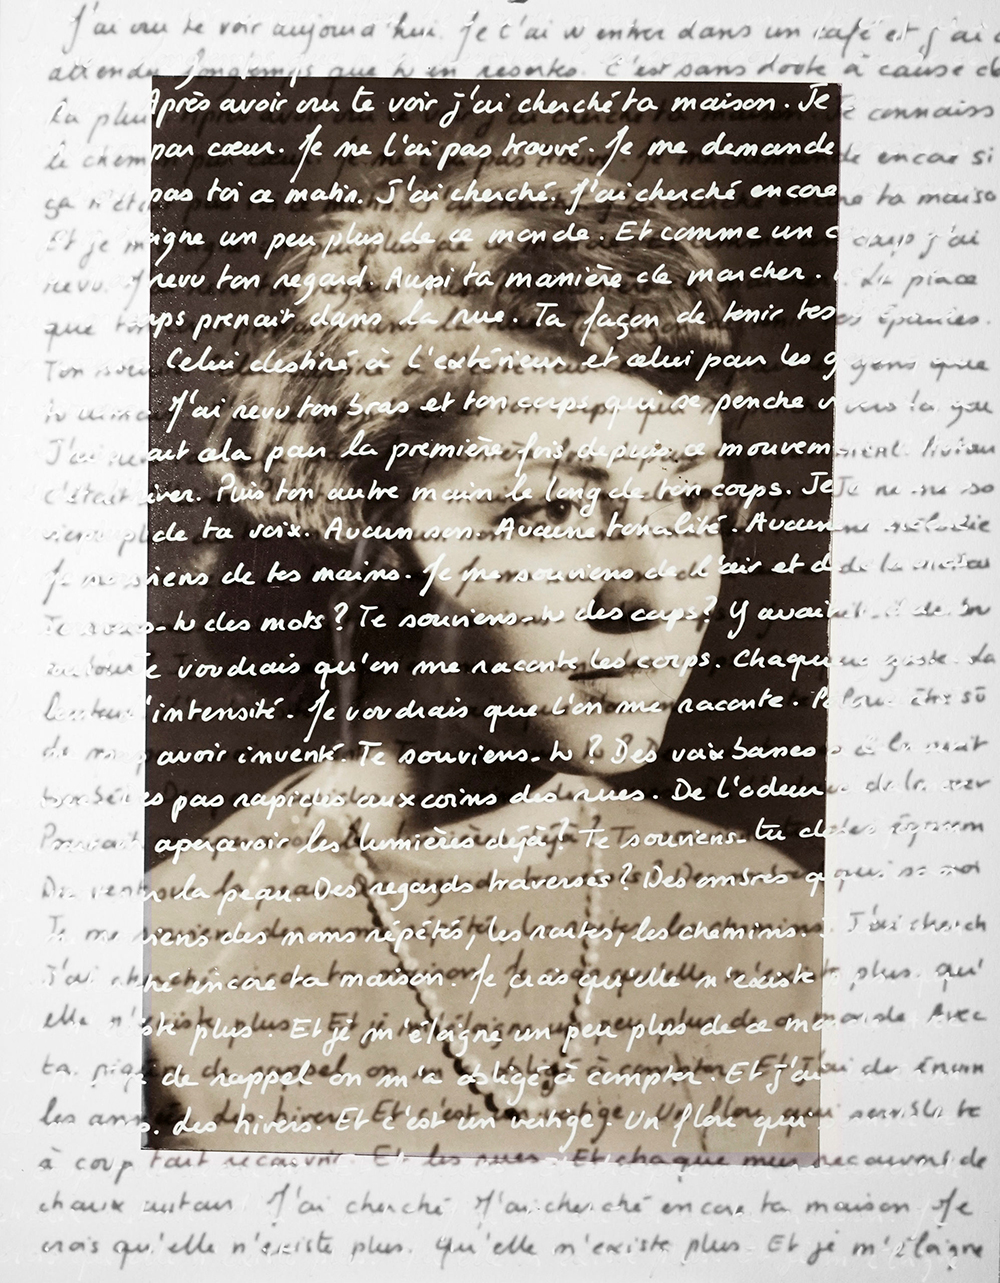 J'ai cru te voir aujourd'hui. Je t'ai vu entrer dans un café et j'ai
attendu longtemps que tu en ressortes. C'est sans doute à cause de
la plui Après avoir cru te voir j'ai cherché ta maison. Je connais
le chem par cœur. Je ne l'ai pas trouvé. Je me demande encore si
ça n'ét pas toi ce matin. J'ai cherché. J'ai cherché encore ta maiso
Et je m'éloigne un peu plus de ce monde. Et comme un coup j'ai
revu ton regard. Aussi ta manière de marcher. La place
que ton corps prenait dans la rue. Ta façon de tenir tes épaules.
Ton Celui destiné à l'extérieur et celui pour les gens que
tu J'ai revu ton bras et ton corps qui se penche vers la
J'ai ait cela pour la première fois depuis ce mouvement.
c'était hiver. Puis ton autre main le long de ton corps. Je ne me so
viens pl de ta voix. Aucun son. Aucune tonalité. Aucune mélodie
Je me souviens de tes mains. Je me souviens de l'air et de la
Te souviens-tu des mots ? Te souviens-tu des corps ? Y avait-il
Je voudrais qu'on me raconte les corps. Chaque geste. La
l'intensité. Je voudrais que l'on me raconte. Pour être sû
de ne pas avoir inventé. Te souviens-tu ? Des voix basses à la nuit
Des pas rapides aux coins des rues. De l'odeur de la mer
Pouvait apercevoir les lumières déjà ? Te souviens-tu des
Du ventre la peau. Des regards traversés ? Des ombres qui
Je me souviens des noms répétés, les routes, les chemins. J'ai cherch
J'ai cherché encore ta maison. Je crois qu'elle n'existe plus. qu'
elle n'existe plus. Et je m'éloigne un peu plus de ce monde Avec
ta de rappel on m'a obligé à compter. Et j'ai dû
les années. des hivers. Et c'est un vertige. Un flou qui semble te
à coup tout recouvrir. Et les rues. Et chaque mur recouvrir de
chaux autour J'ai cherché J'ai cherché encore ta maison Je
crois qu'elle n'existe plus. Qu'elle n'existe plus. Et je m'éloigne